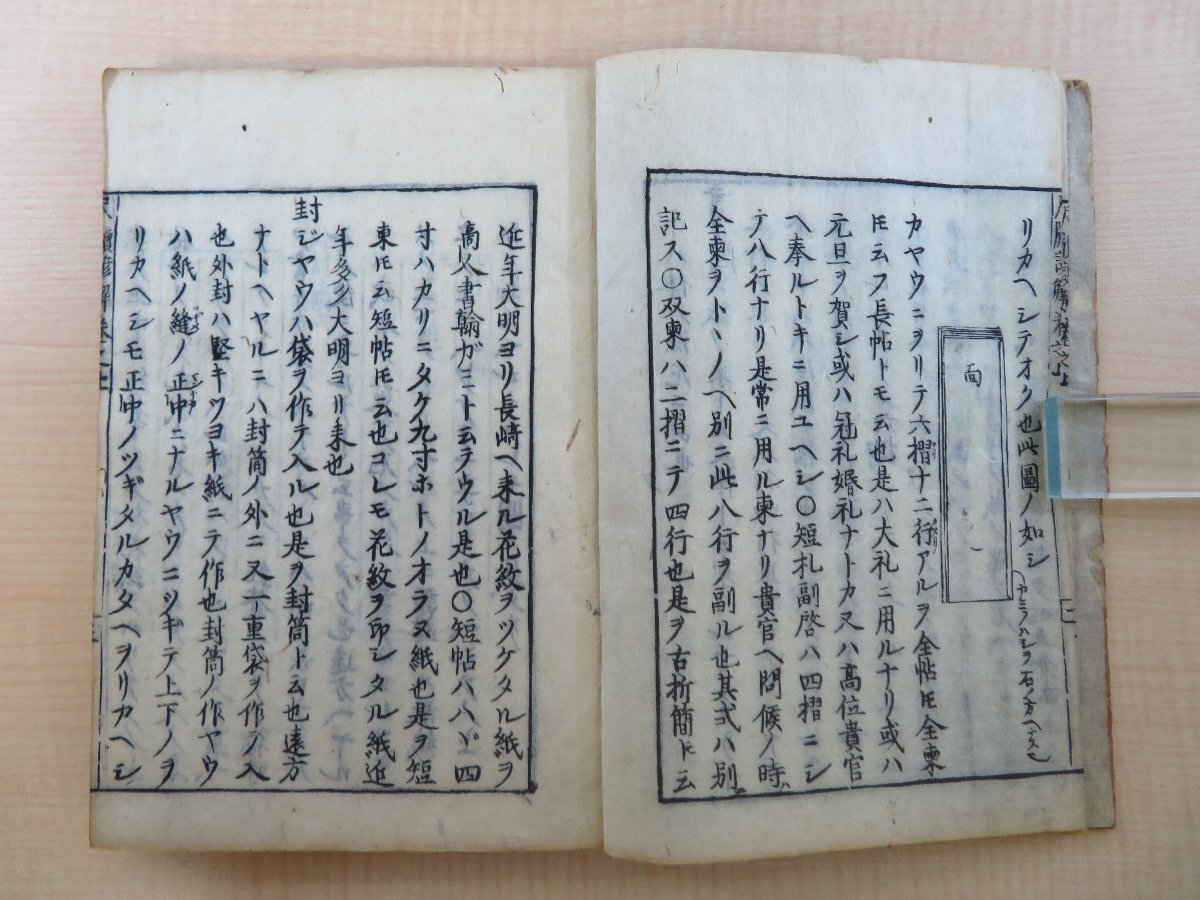 リカヘシテオク也此圖ノ如シ
面
カヤウニヲリテ六摺十二行アルヲ全帖𪜈全柬
𪜈云フ長帖トモ云也是ハ大礼ニ用ルナリ或ハ
元旦ヲ賀シ或ハ冠礼婚礼ナトカ又ハ高位貴官
ヘ奉ルトキニ用ユヘシ〇短札副啓ハ四摺ニシ
テ八行ナリ是常ニ用ル柬ナリ貴官ヘ問候ノ時ハ
全柬ヲトヽノヘ別ニ此八行ヲ副ル也其式ハ別ニ
記ス〇双柬ハ二摺ニテ四行也是ヲ古折簡𪜈云
近年大明ヨリ長崎ヘ来ル花紋ヲツケタル紙ヲ
商人書翰ガミト云テウル是也〇短帖ハハヾ四
寸ハカリニタケ九寸ホトノオラヌ紙也是ヲ短
柬𪜈云短帖𪜈云也コレモ花紋ヲ印シタル紙近
年多ク大明ヨリ来也
封ジヤウハ袋ヲ作テ入ル也是ヲ封筒ト云也遠方
ナトヘヤルニハ封筒ノ外ニ又一重袋ヲ作テ入
也外封ハ堅キツヨキ紙ニテ作也封筒ノ作ヤウ
ハ紙ノ縫ノ正中ニナルヤウニツギテ上下ノヲ
リカヘシモ正中ノツギタルカタヘヲリカヘシ